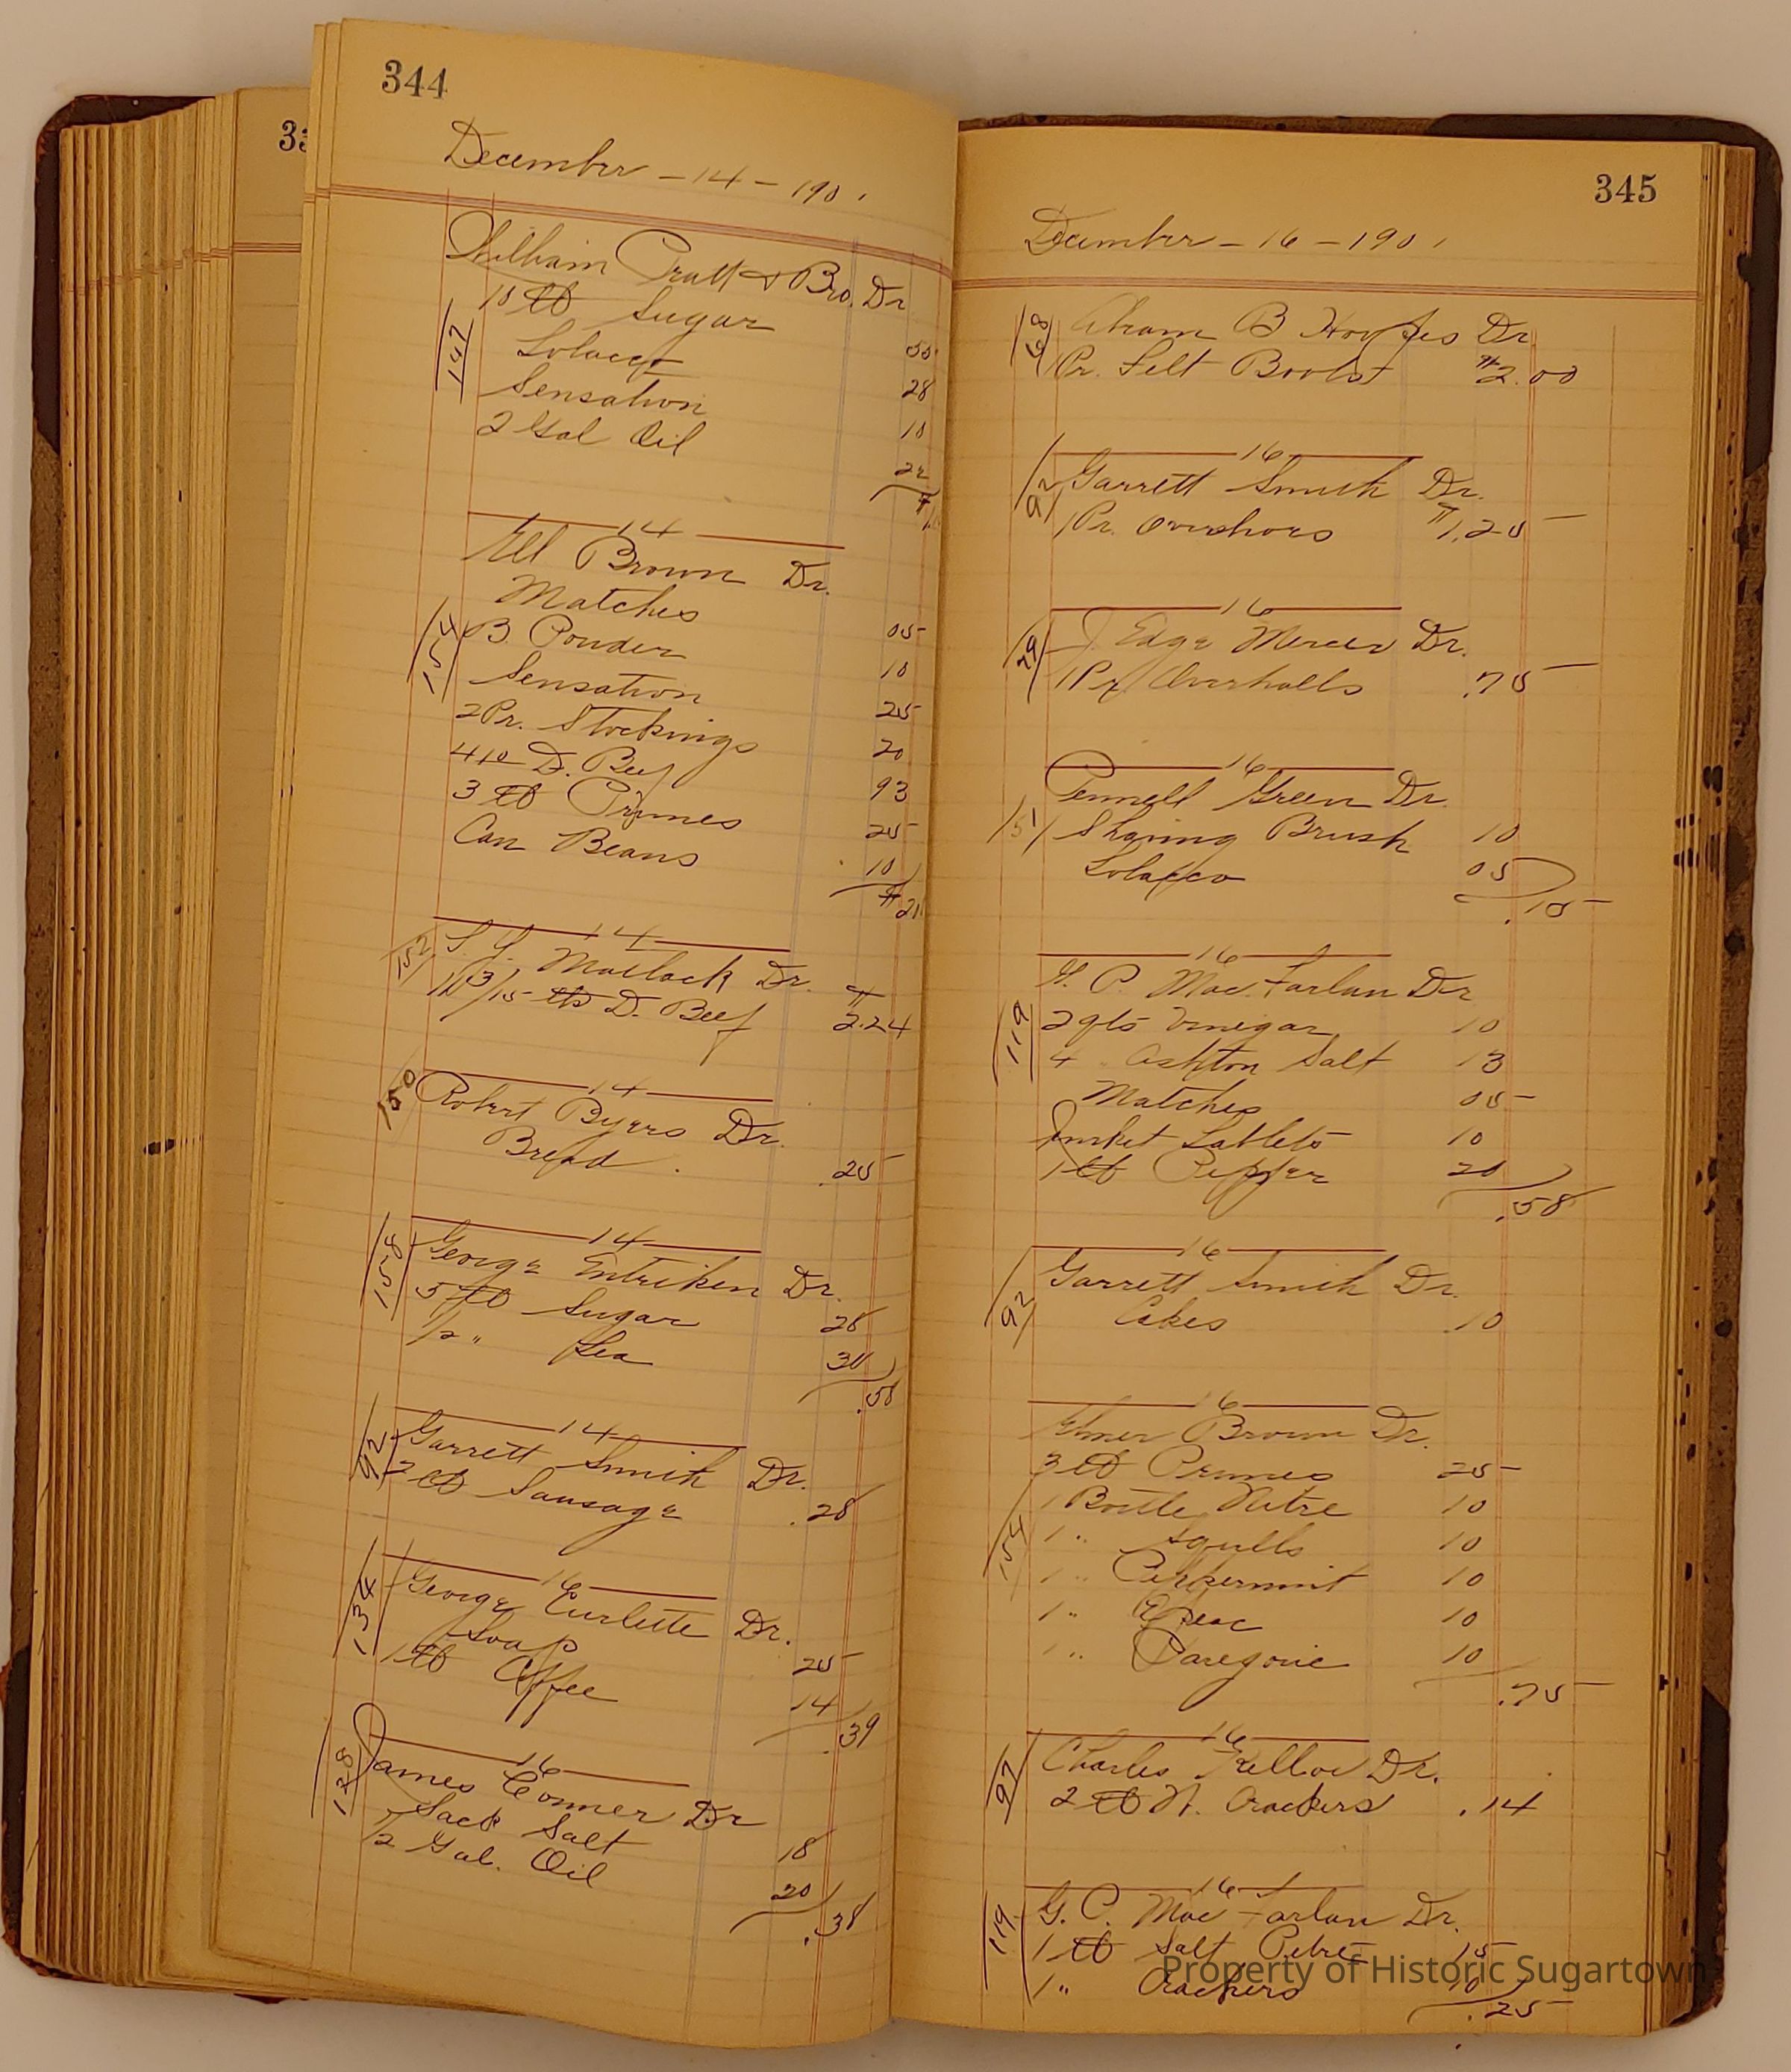 344
December - 14 - 190
William Pratt & Bro. Dr
147
10 lb Sugar
Tobacco 28
Sensation 10
2 Gal Oil
14
Brown Dr.
154
Matches 05
B. Powder 10
Sensation 25
2 Pr. Stockings 20
D. Beef 93
3 lb Prunes 25
Can Beans 10
14
152
Matlack Dr.
lbs D. Beef $2.24
14
150
Robert Byers Dr.
Bread .25
14
158
George Entriken Dr.
5 lb Sugar 28
1/2 " Tea 30
.58
14
92
Garrett Smith Dr.
2 lb Sausage .28
16
134
George Dr.
Soap 25
1 lb Coffee 14
.39
16
128
James Conner Dr
Sack Salt 18
Gal. Oil 20
.38
345
December - 16 - 1901
68
Abram B Hoopes Dr
Pr. Felt Boots $2.00
16
92
Garrett Smith Dr.
1 Pr. Overshoes $1.25
16
29
J. Edge Mercer Dr.
1 Pr Overhalls .75
16
151
Pennell Green Dr.
Shaving Brush 10
Tobacco 05
.15
16
119
G. P. Mac Farlan Dr
2 qts Vinegar 10
4 " Ashton Salt 13
Matches 05
Junket Tablets 10
1 lb Pepper 20
.58
16
92
Garrett Smith Dr.
Cakes .10
16
154
Elmer Brown Dr.
3 lb Prunes 25
1 Bottle Nitre 10
1 " Squills 10
1 " Pepermint 10
1 " Ipeac 10
1 " Paregoric 10
.75
16
97
Charles Dr.
2 lb N. Crackers .14
16
119
G. P. Mac Farlan Dr.
1 lb Salt Petre 15
1 " Crackers 10
.25
Property of Historic Sugartown